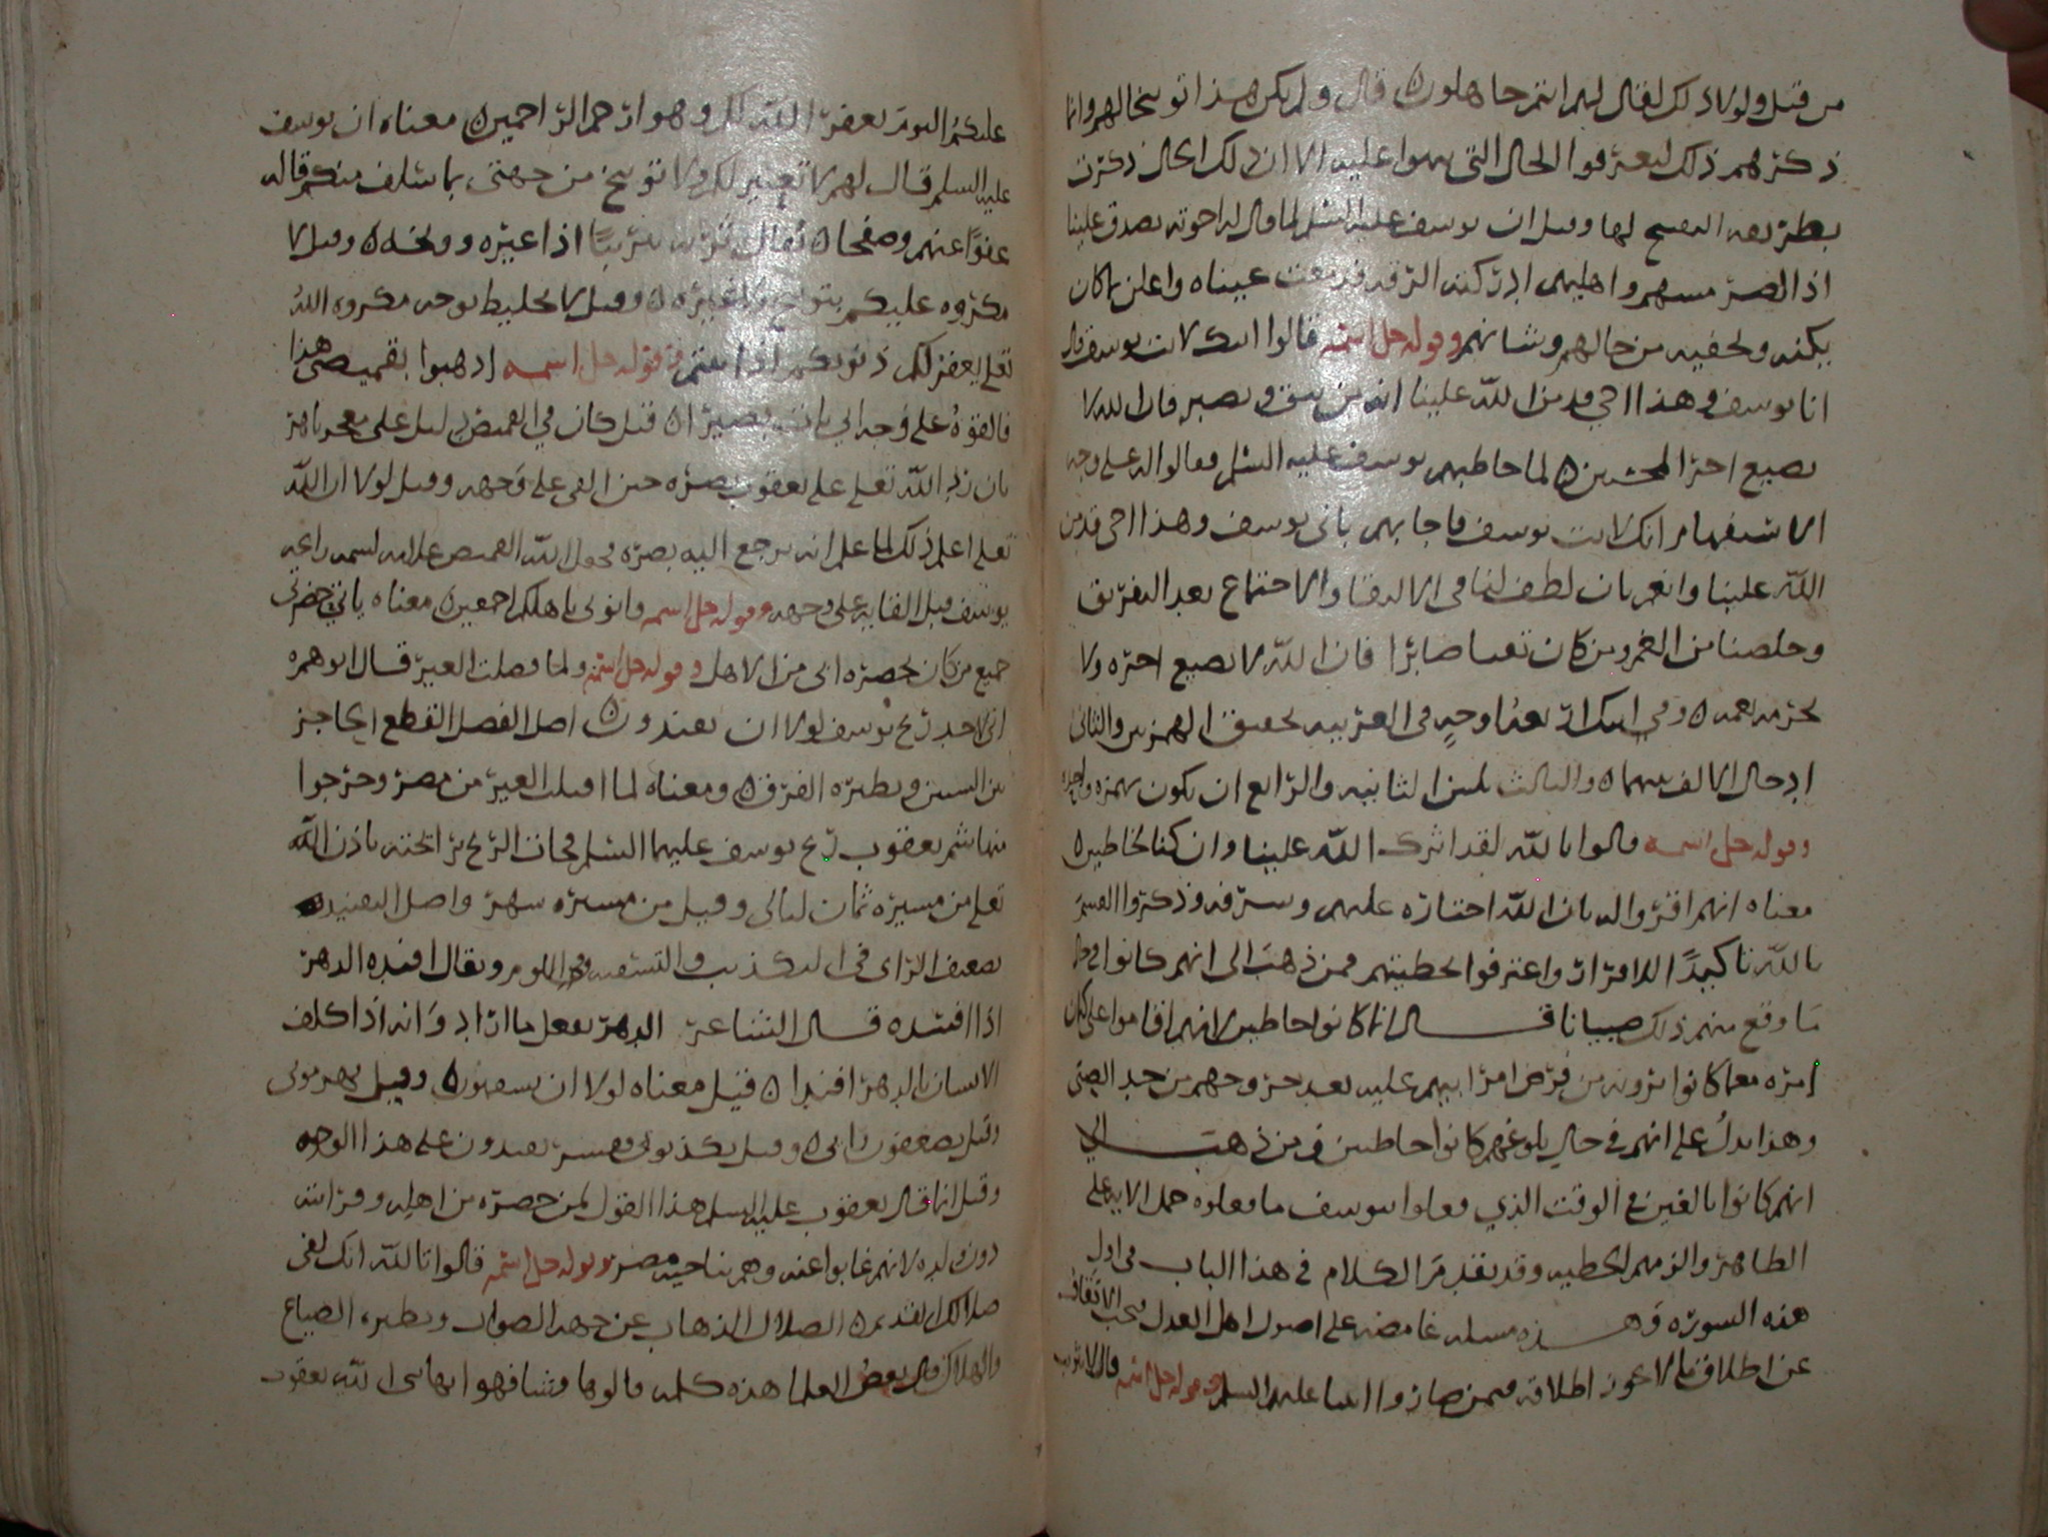 من قبل ولولا ذلك لقال لهم انتم جاهلون قال ولم يكن هذا توبيخا لهم وانما
ذكرهم ذلك ليعترفوا الحال التي عليه الا ان ذلك الحال ذكرت
بطريقه لها وقيل ان يوسف عليه السلم لما قال له اخوته تصدق علينا
اذا الضر مسهم واهليهم ادركته الرقه فدمعت عيناه واعلن ما كان
يكتمه ويخفيه من حالهم وشانهم وقوله جل اسمه قالوا انك لانت يوسف قال
انا يوسف وهذا اخي قد من الله علينا انه من يتق ويصبر فان الله لا
يضيع اجر المحسنين لما خاطبهم يوسف عليه السلم فقالوا له على وجه
الاستفهام انك لانت يوسف فاجابهم باني يوسف وهذا اخي قد من
الله علينا وانعم بان لطف لنا في الالتقا والاجتماع بعد التفريق
وخلصنا من الغم ومن كان تقيا صابرا فان الله لا يضيع اجره ولا
يحرمه نعمه وفي اينك اربعه اوجه في العربيه تحقيق الهمزتين والثاني
ادخال الالف بينهما والثالث تليين الثانيه والرابع ان يكون بهمزه واحده
وقوله جل اسمه قالوا تالله لقد اثرك الله علينا وان كنا لخاطين
معناه انهم اقروا له بان الله اختاره عليهم وشرفه وذكروا القسم
بالله تاكيدا للاقرار واعترفوا بخطيتهم فمن ذهب الى انهم كانوا في حال
ما وقع منهم ذلك صبيانا قال انما كانوا خاطين لانهم اقاموا على كتمان
امره معما كانوا يرونه من فرض امر ابيهم عليه بعد خروجهم من حد الصبى
وهذا يدل على انهم في حال بلوغهم كانوا خاطين ومن ذهب الى
انهم كانوا بالغين في الوقت الذي فعلوا بيوسف ما فعلوه حمل الايه على
الظاهر والزمهم الخطيه وقد تقدم الكلام في هذا الباب في اول
هذه السوره وهذه مسله غامضه على اصول اهل العدل فيجب الاتقاف
عن اطلاق ما لا يجوز اطلاقه فيمن صاروا انبيا عليهم السلم وقوله جل اسمه قال لا تثريب
عليكم اليوم يغفر الله لكم وهو ارحم الراحمين معناه ان يوسف
عليه السلم قال لهم لا تعيير لكم ولا توبيخ من جهتى بما سلف منكم قاله
عفوا عنهم وصفحا يقال ثربه تثريبا اذا عيره ووبخه وقيل لا
مكروه عليكم بتوبيخ ولا غيره وقيل لا تخليط بوجه مكروه الله
تعلى يغفر لكم ذنوبكم اذا تبتم وقوله جل اسمه اذهبوا بقميصي هذا
فالقوه على وجه ابي يات بصيرا قيل كان في القميص دليل على معجز باهر
بان رد الله تعلى على يعقوب بصره حين القى على وجهه وقيل لولا ان الله
تعلى اعلم ذلك لما علم انه يرجع اليه بصره يجعل الله القميص علامه لسمه رايحه
يوسف قبل القايه على وجهه وقوله جل اسمه واتوني باهلكم اجمعين معناه ياتي بحضرتي
جميع من كان بحضره ابي من الاهل وقوله جل اسمه ولما فصلت العير قال ابوهم
اني لاجد ريح يوسف لولا ان تفندون اصل الفصل القطع الحاجز
بين السيين ونظيره الفرق ومعناه لما اقبلت العير من مصر وخرجوا
منها شم يعقوب ريح يوسف عليهما السلم فجات الريح برائحته باذن الله
تعلى من مسيره ثمان ليالى وقيل من مسيره شهر واصل التفنيد
تضعيف الراى في التكذيب والتسفيه في اللوم ويقال افنده الدهر
اذا افسده قال الشاعر الدهر يفعل ما اراد وانه اذا كلف
الانسان بالدهر افندا قيل معناه لولا ان تسفهون وقيل تهرموني
وقيل تضعفون رائي وقيل تكذبوني وتفسير تفندون على هذا الوجه
وقيل انما قال يعقوب عليه السلم هذا القول لمن حضره من اهله وقرابته
دون ولده لانهم غابوا عنه وهم بناحيه مصر وقوله جل اسمه قالوا تالله انك لفى
ضلالك القديم الضلال الذهاب عن جهه الصواب ونظيره الضياع
والهلاك قال بعض العلما هذه كلمه قالوها وشافهوا بها نبي الله يعقوب